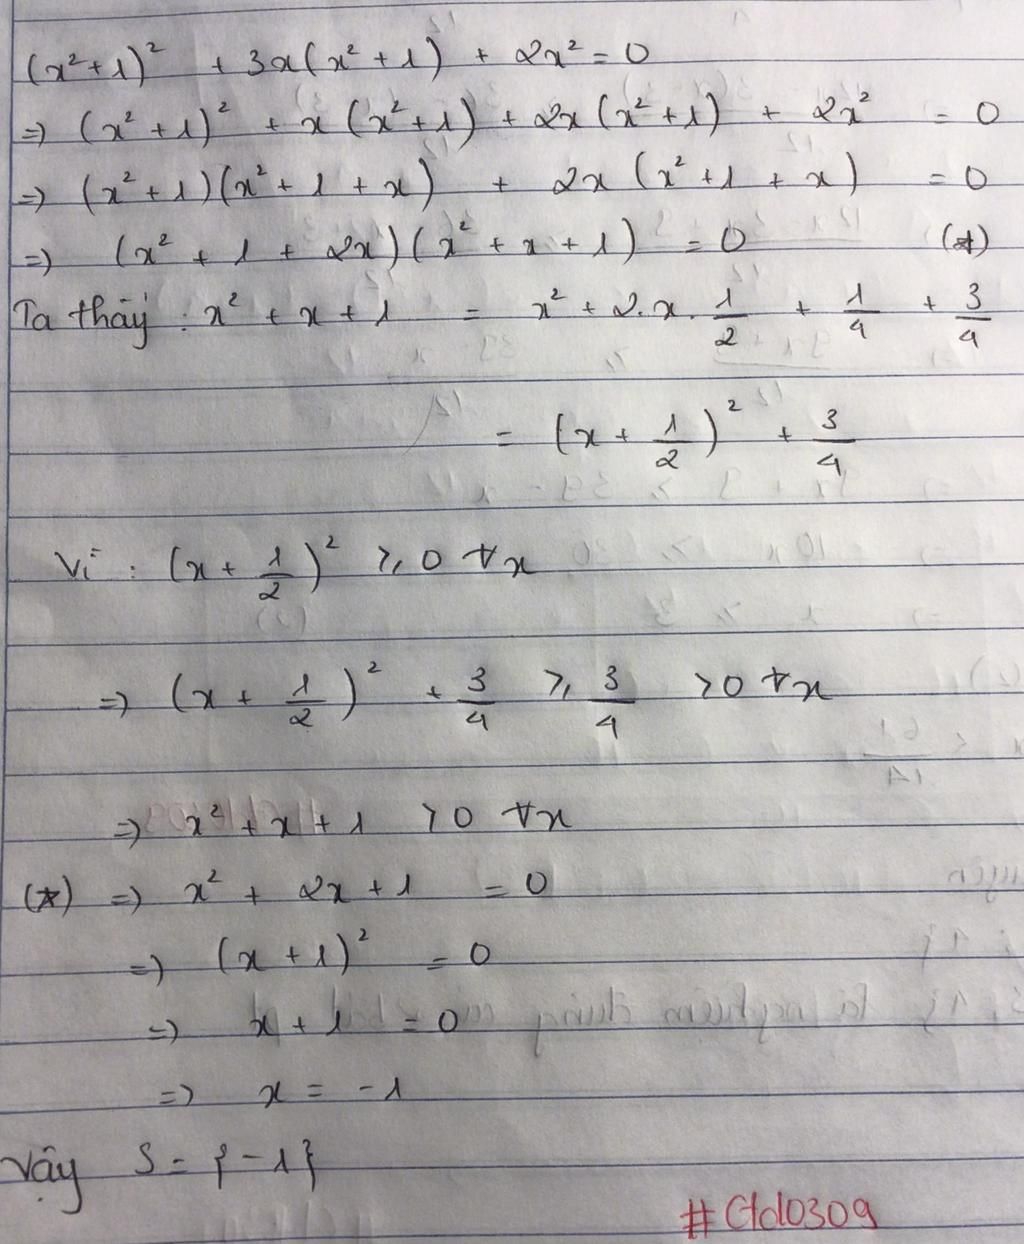 (x² + 1)² + 3x(x² + 1) + 2x² = 0
=> (x² + 1)² + x(x² + 1) + 2x(x² + 1) + 2x² = 0
=> (x² + 1)(x² + 1 + x) + 2x(x² + 1 + x) = 0
=> (x² + 1 + 2x)(x² + x + 1) = 0 (*)
Ta thấy : x² + x + 1 = x² + 2.x.1/2 + 1/4 + 3/4
= (x + 1/2)² + 3/4
Vì : (x + 1/2)² ≥ 0 ∀x
=> (x + 1/2)² + 3/4 ≥ 3/4 > 0 ∀x
=> x² + x + 1 > 0 ∀x
(*) => x² + 2x + 1 = 0
=> (x + 1)² = 0
=> x + 1 = 0
=> x = -1
Vậy S = {-1}
# Ctd0309